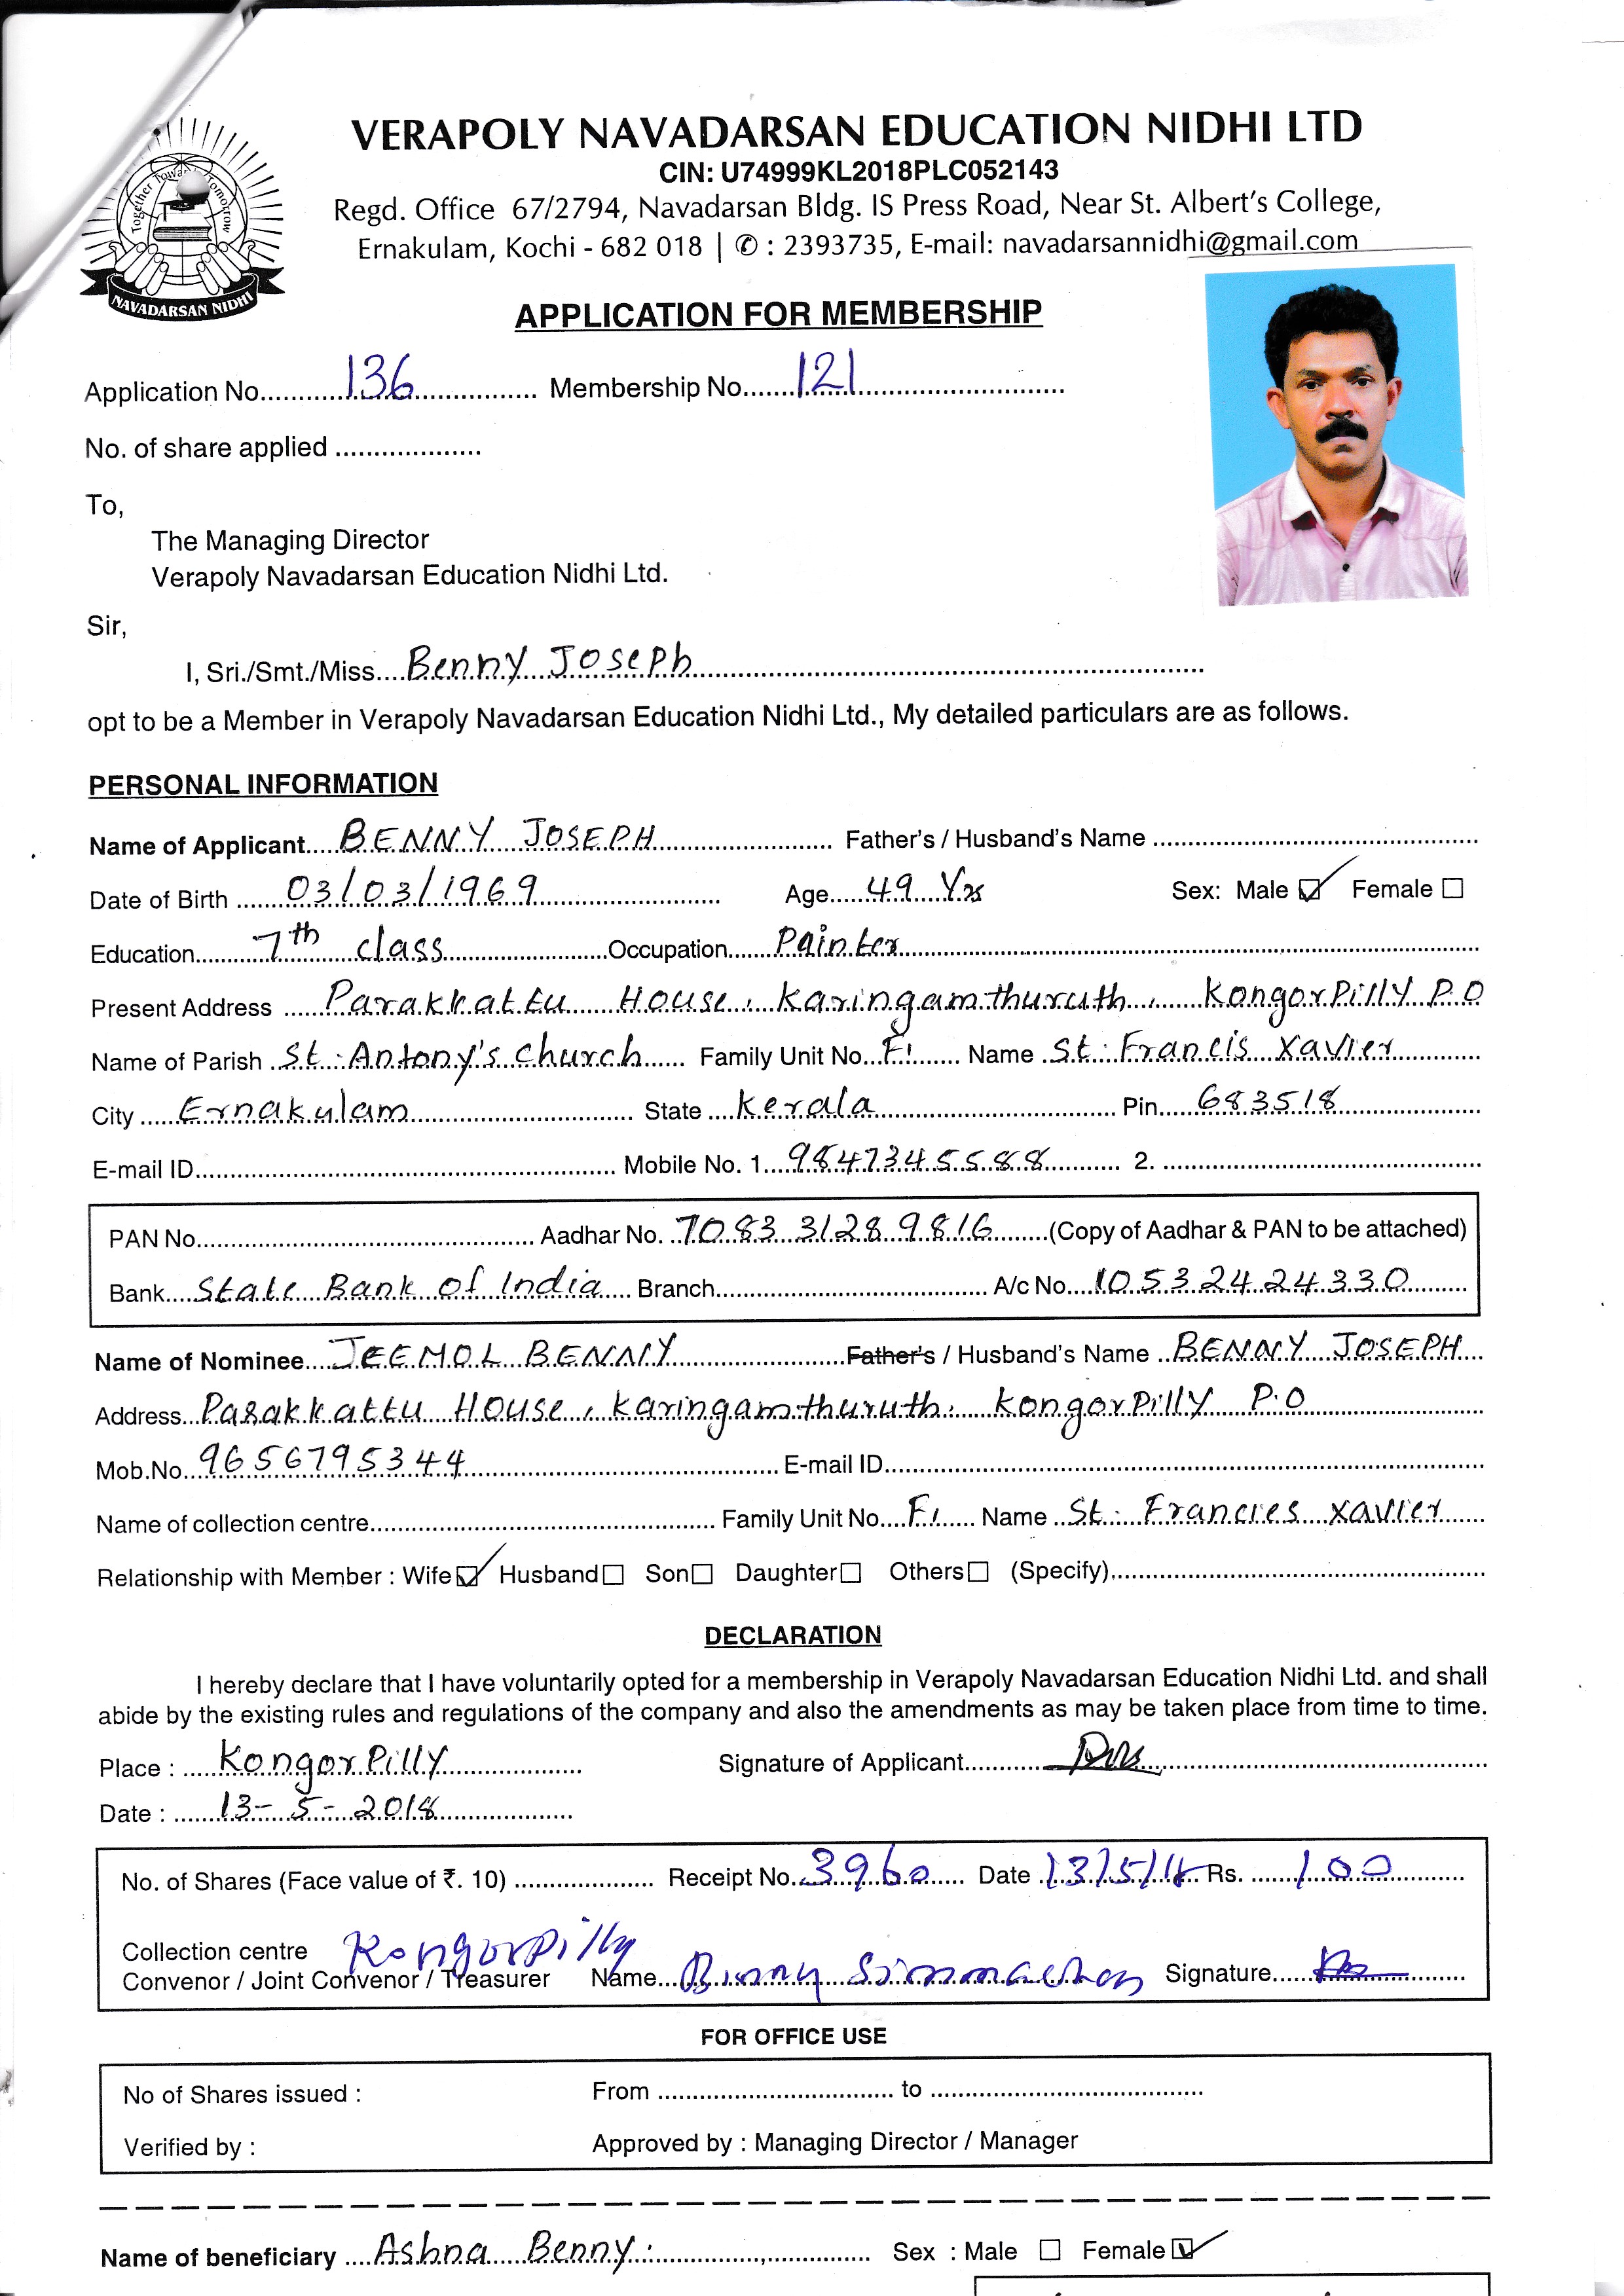 VERAPOLY NAVADARSAN EDUCATION NIDHI LTD
CIN: U74999KL2018PLC052143
Regd. Office 67/2794, Navadarsan Bldg. IS Press Road, Near St. Albert's College,
Ernakulam, Kochi - 682 018 | ✆ : 2393735, E-mail: navadarsannidhi@gmail.com
Together Towards Tomorrow
NAVADARSAN NIDHI
APPLICATION FOR MEMBERSHIP
Application No. 136 Membership No. 121
No. of share applied
To,
The Managing Director
Verapoly Navadarsan Education Nidhi Ltd.
Sir,
I, Sri./Smt./Miss. Benny Joseph
opt to be a Member in Verapoly Navadarsan Education Nidhi Ltd., My detailed particulars are as follows.
PERSONAL INFORMATION
Name of Applicant BENNY JOSEPH Father's / Husband's Name
Date of Birth 03/03/1969 Age 49 Yrs Sex: Male ☑ Female ☐
Education 7th class Occupation Painter
Present Address Parakkattu House, Karingamthuruth, Kongorpilly P.O
Name of Parish St. Antony's Church Family Unit No. F1 Name St. Francis Xavier
City Ernakulam State Kerala Pin 683518
E-mail ID Mobile No. 1. 9847345588 2.
PAN No. Aadhar No. 7083 3128 9816 (Copy of Aadhar & PAN to be attached)
Bank State Bank of India Branch A/c No. 10532424330
Name of Nominee JEEMOL BENNY Father's / Husband's Name BENNY JOSEPH
Address Parakkattu House, Karingamthuruth, Kongorpilly P.O
Mob.No. 9656795344 E-mail ID
Name of collection centre Family Unit No. F1 Name St. Francies Xavier
Relationship with Member : Wife ☑ Husband ☐ Son ☐ Daughter ☐ Others ☐ (Specify)
DECLARATION
I hereby declare that I have voluntarily opted for a membership in Verapoly Navadarsan Education Nidhi Ltd. and shall
abide by the existing rules and regulations of the company and also the amendments as may be taken place from time to time.
Place : Kongorpilly Signature of Applicant
Date : 13-5-2018
No. of Shares (Face value of ₹. 10) Receipt No. 3960 Date 13/5/18 Rs. 100
Collection centre Kongorpilly
Convenor / Joint Convenor / Treasurer Name Binny Signature
FOR OFFICE USE
No of Shares issued : From to
Verified by : Approved by : Managing Director / Manager
Name of beneficiary Ashna Benny Sex : Male ☐ Female ☑